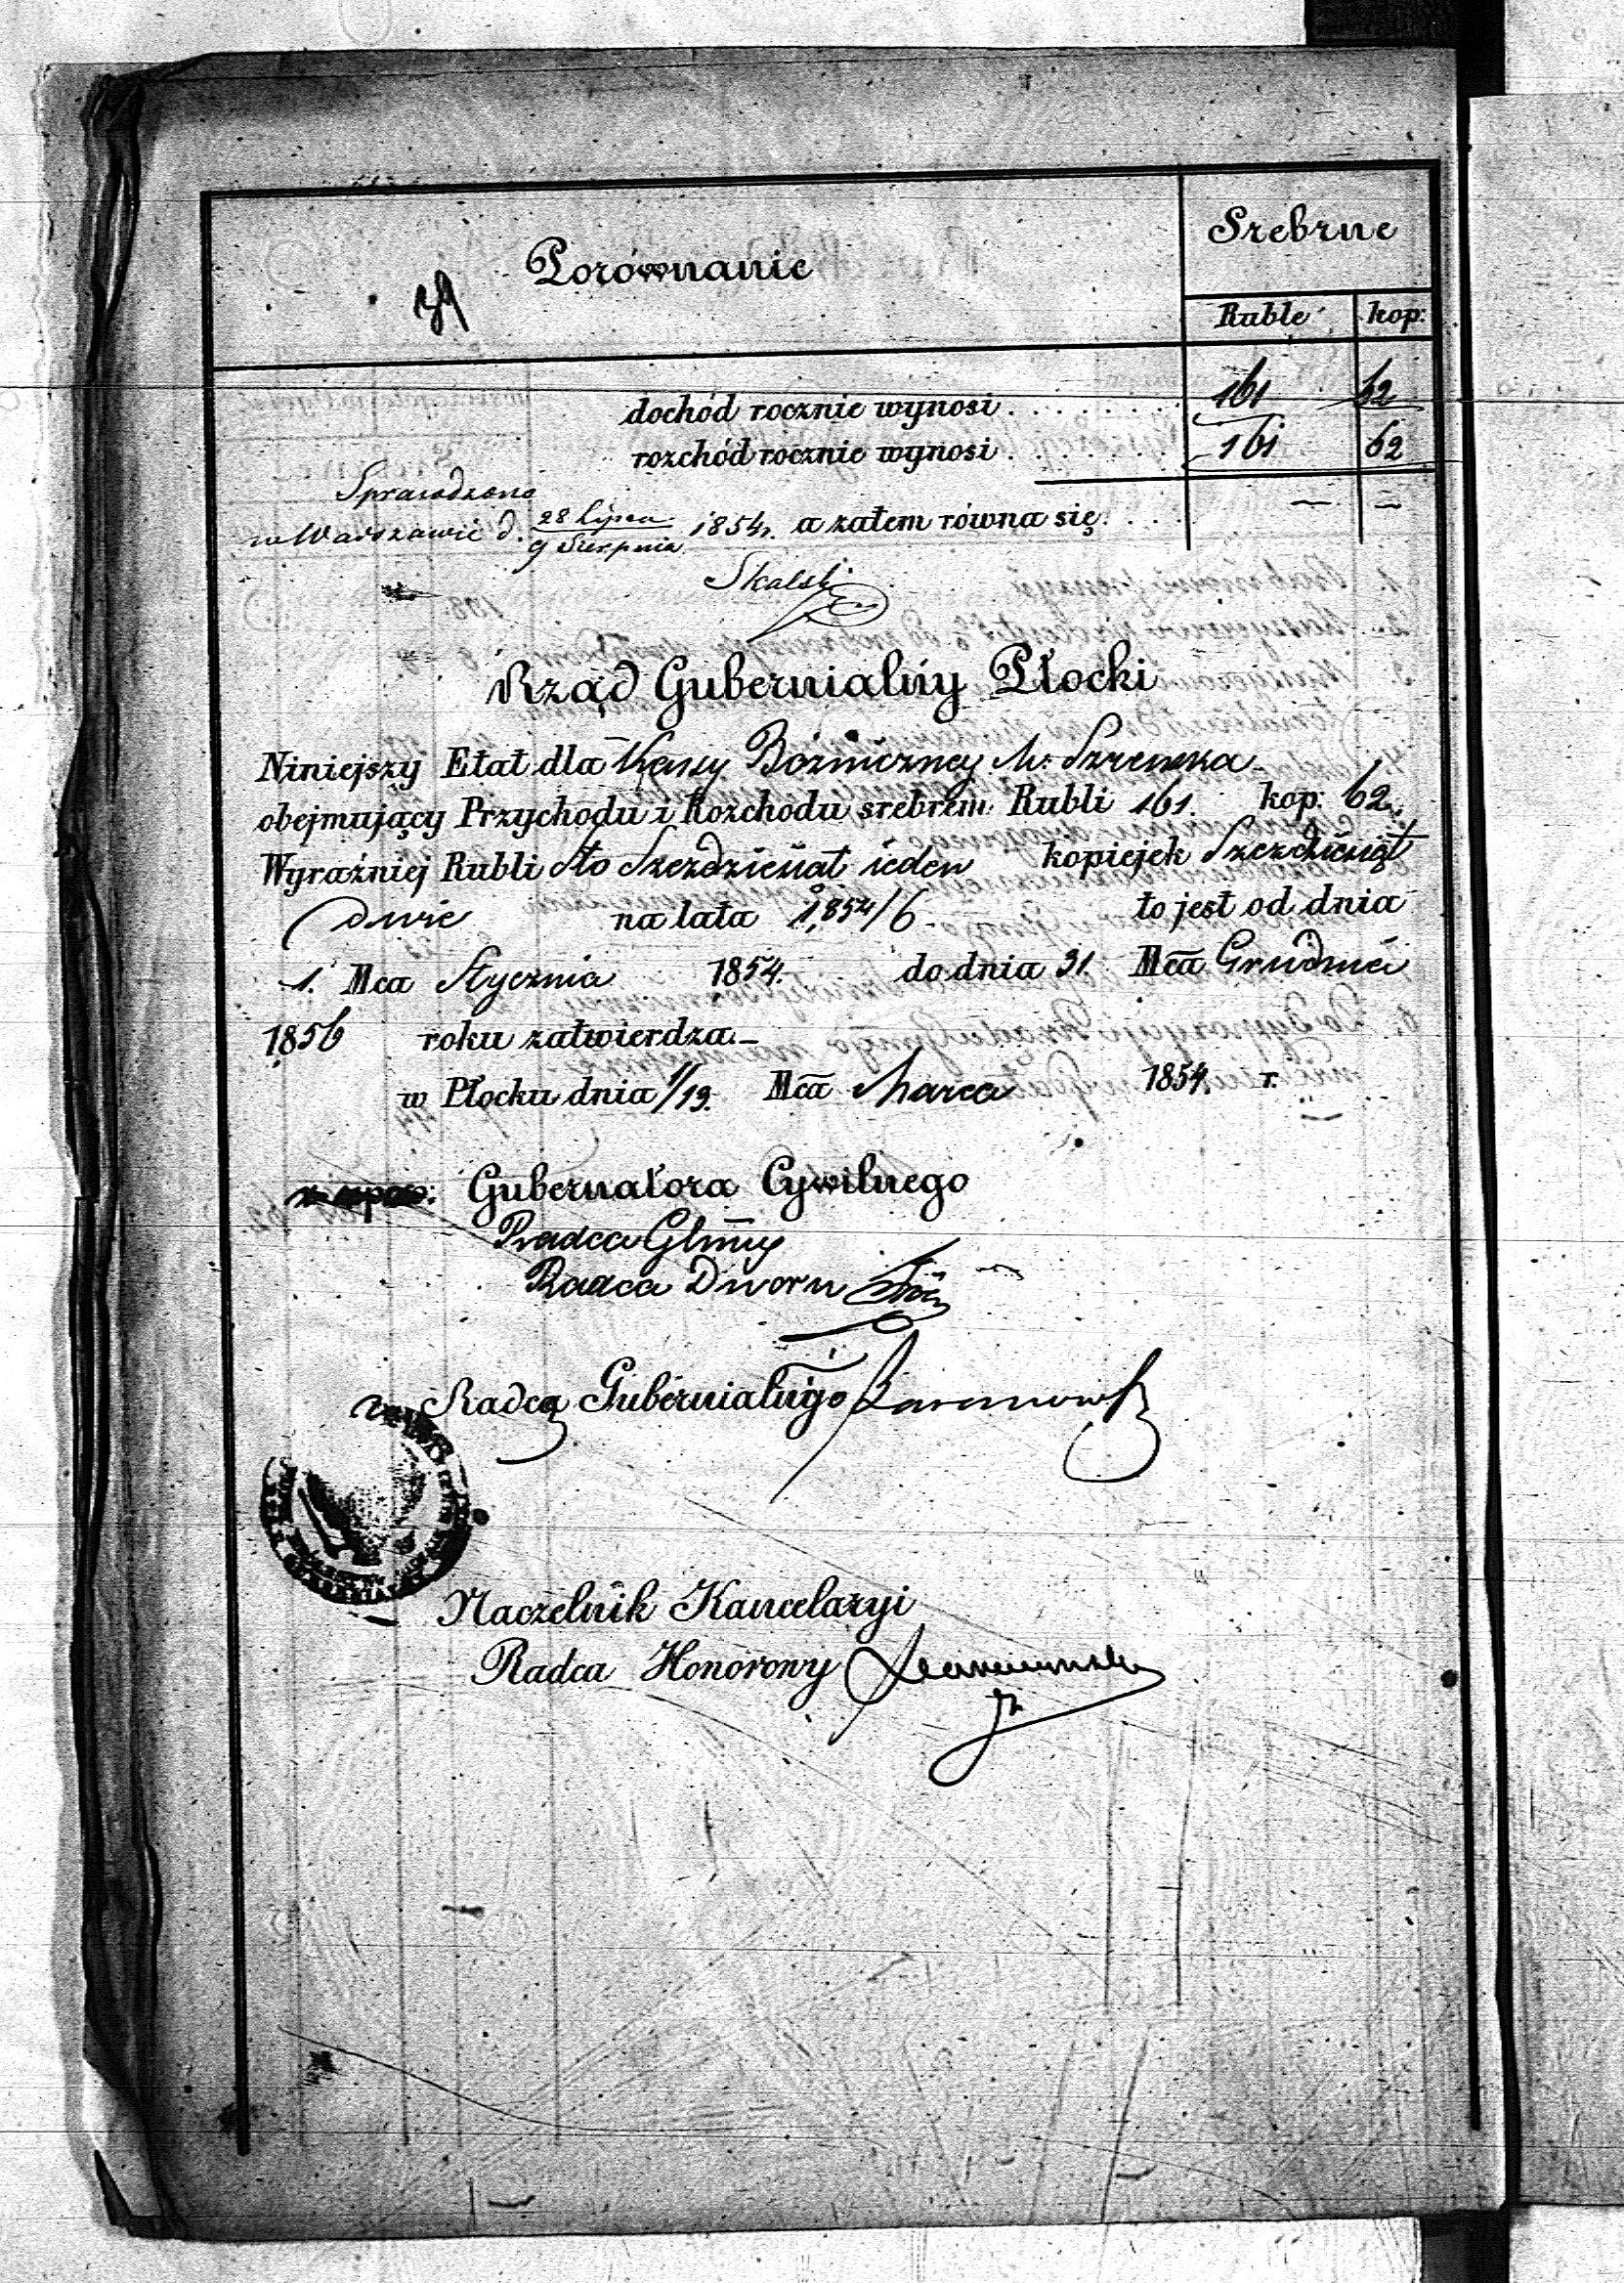 Srebrne
Porównanie
39
Ruble kop:
dochód rocznie wynosi . . . . . . . . 161 62
rozchód rocznie wynosi . . . . . . . . 161 62
Sprawdzono
w Warszawie d. 28 Lipca / 9 Sierpnia 1854 r. a zatem równa się. . . . — —
Skalski
Rząd Gubernialny Płocki
Niniejszy Etat dla Kassy Bóżniczney M. Szreńska
obejmujący Przychodu i Rozchodu srebrem Rubli 161. kop: 62.
Wyraźniej Rubli Sto Sześdziesiąt ieden kopiejek Sześćdziesiąt
dwie na lata 1854/6. to jest od dnia
1. Mca Stycznia 1854. do dnia 31. Mca Grudnia
1856 roku zatwierdza.—
w Płocku dnia 1/13. Mca Marca 1854. r.
Gubernatora Cywilnego
Radca Głłny
Radca Dworu
Radca Gubernialnyo
Naczelnik Kancelaryi
Radca Honorowy